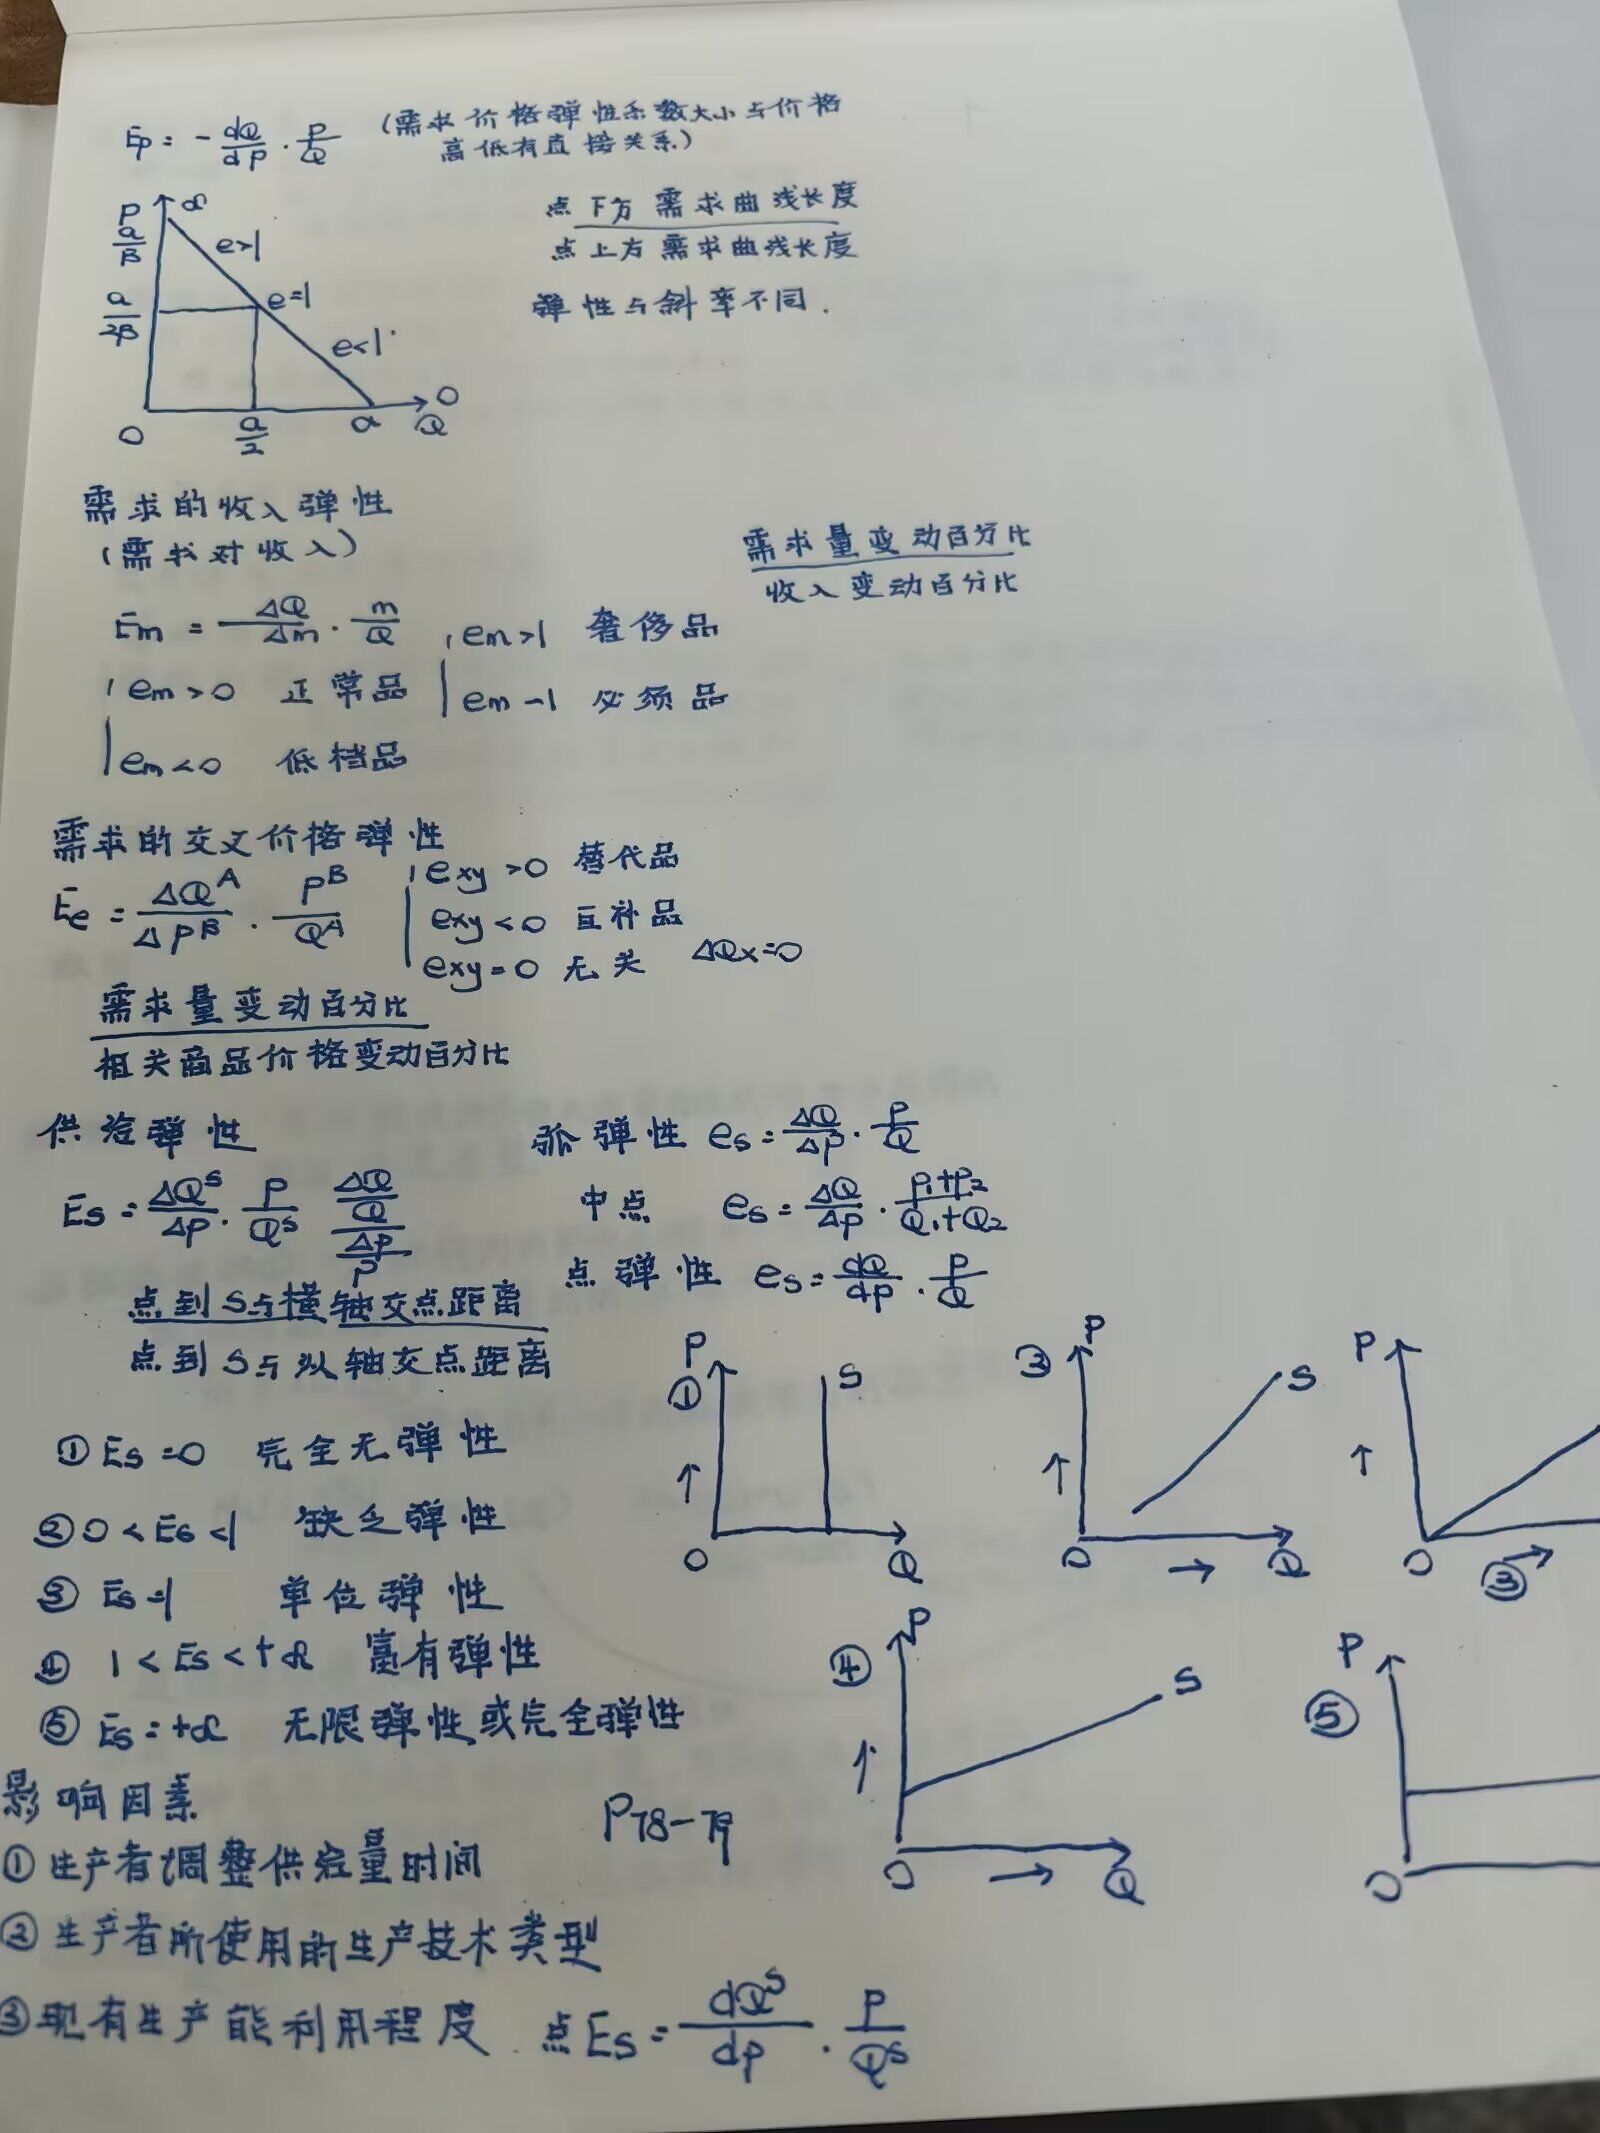 Ep = - dQ/dP · P/Q (需求价格弹性系数大小与价格
高低有直接关系)
P ∞
a/β
e>1
a/2β
e=1
e<1
O a/2 a Q O
点下方需求曲线长度
点上方需求曲线长度
弹性与斜率不同.
需求的收入弹性
(需求对收入)
需求量变动百分比
收入变动百分比
Em = ΔQ/Δm · m/Q
em>1 奢侈品
em>0 正常品
em-1 必须品
em<0 低档品
需求的交叉价格弹性
Ee = ΔQᴬ/ΔPᴮ · Pᴮ/Qᴬ
exy>0 替代品
exy<0 互补品
exy=0 无关 ΔQx=0
需求量变动百分比
相关商品价格变动百分比
供给弹性
Es = ΔQˢ/ΔP · P/Qˢ ΔQ/Q / ΔP/P
点到S与横轴交点距离
点到S与纵轴交点距离
弧弹性 es = ΔQ/ΔP · P/Q
中点 es = ΔQ/ΔP · P₁+P₂/Q₁+Q₂
点弹性 es = dQ/dP · P/Q
① Es=0 完全无弹性
② 0<Es<1 缺乏弹性
③ Es=1 单位弹性
④ 1<Es<+∞ 富有弹性
⑤ Es=+∞ 无限弹性或完全弹性
P ① S ↑ O Q
③ P S ↑ O → Q
P ↑ O ③ →
④ P S ↑ O → Q
⑤ P O
影响因素
P78-79
①生产者调整供给量时间
②生产者所使用的生产技术类型
③现有生产能利用程度. 点Es = dQˢ/dP · P/Qˢ